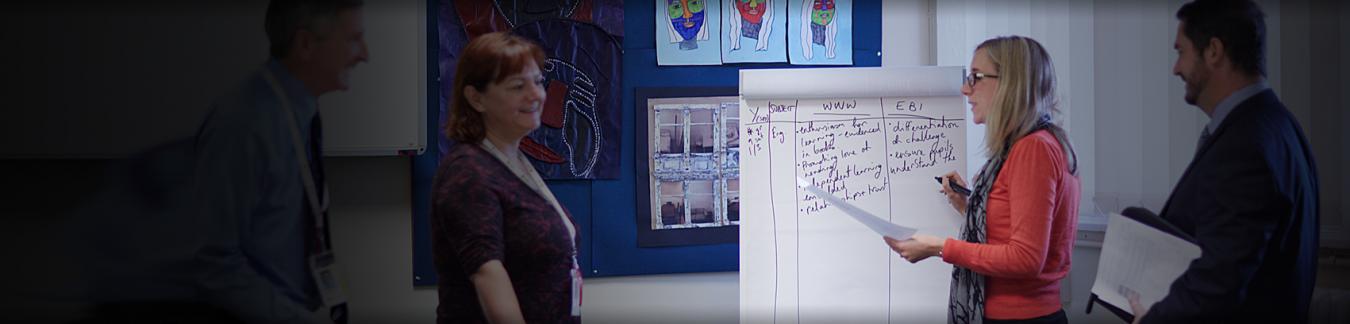 Y/Group SUBJECT WWW EBI
Eng
• enthusiasm for
learning - evidenced
in books
• Promoting love of
reading
• independent learning
embedded
• relationships + trust
• differentiation
of challenge
• ensure pupils
understand the